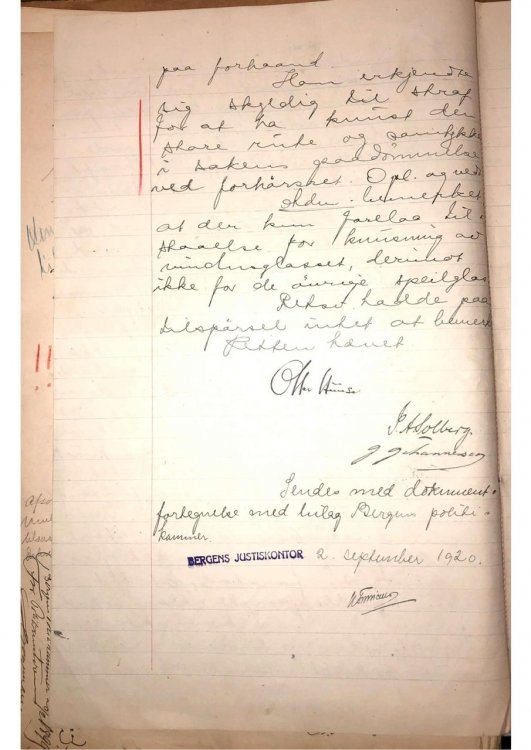 paa forhaand
Han erkjendte
sig skyldig til straf
for at ha knust den
store rute og samtykket
i sakens paadömmelse
ved forhörsret. Opl. og ved
at der kun forelaa til-
staaelse for knusning av
vindusglasset, derimot
ikke for de övrige speilglas
Retsv. hadde paa
tilspörsel intet at bemerke
Retten hævet
J. A. Solberg.
J Johannessen
Sendes med dokument-
fortegnelse med bilag Bergens politi-
kammer.
BERGENS JUSTISKONTOR 2. september 1920.